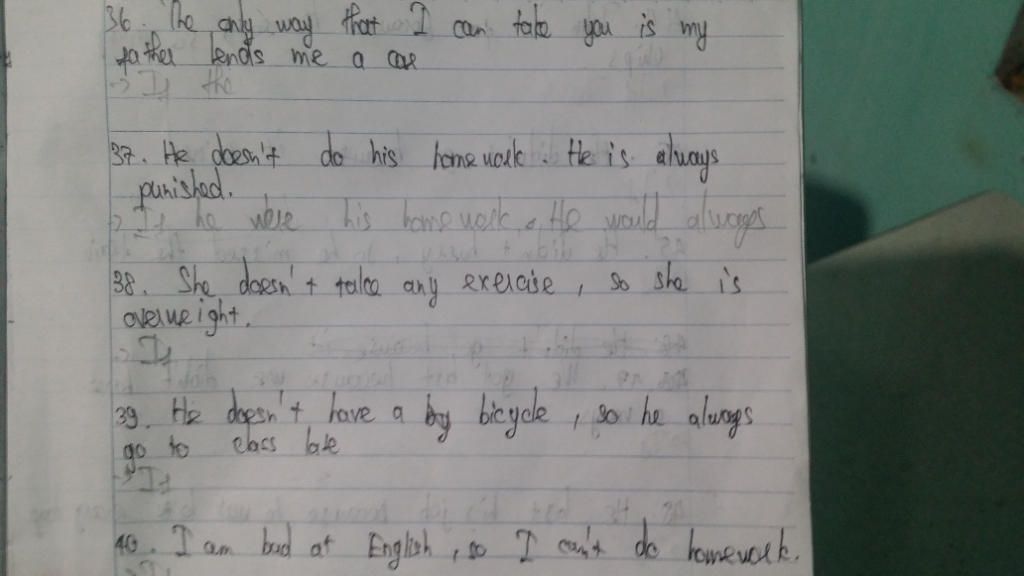 36. The only way that I can take you is my
father lends me a car
-> If the
37. He doesn't do his homework. He is always
punished.
-> If he were his homework, He would always
38. She doesn't take any exercise, so she is
overweight.
-> If
39. He doesn't have a bicycle, so he always
go to class late
-> If
40. I am bad at English, so I can't do homework.
-> If